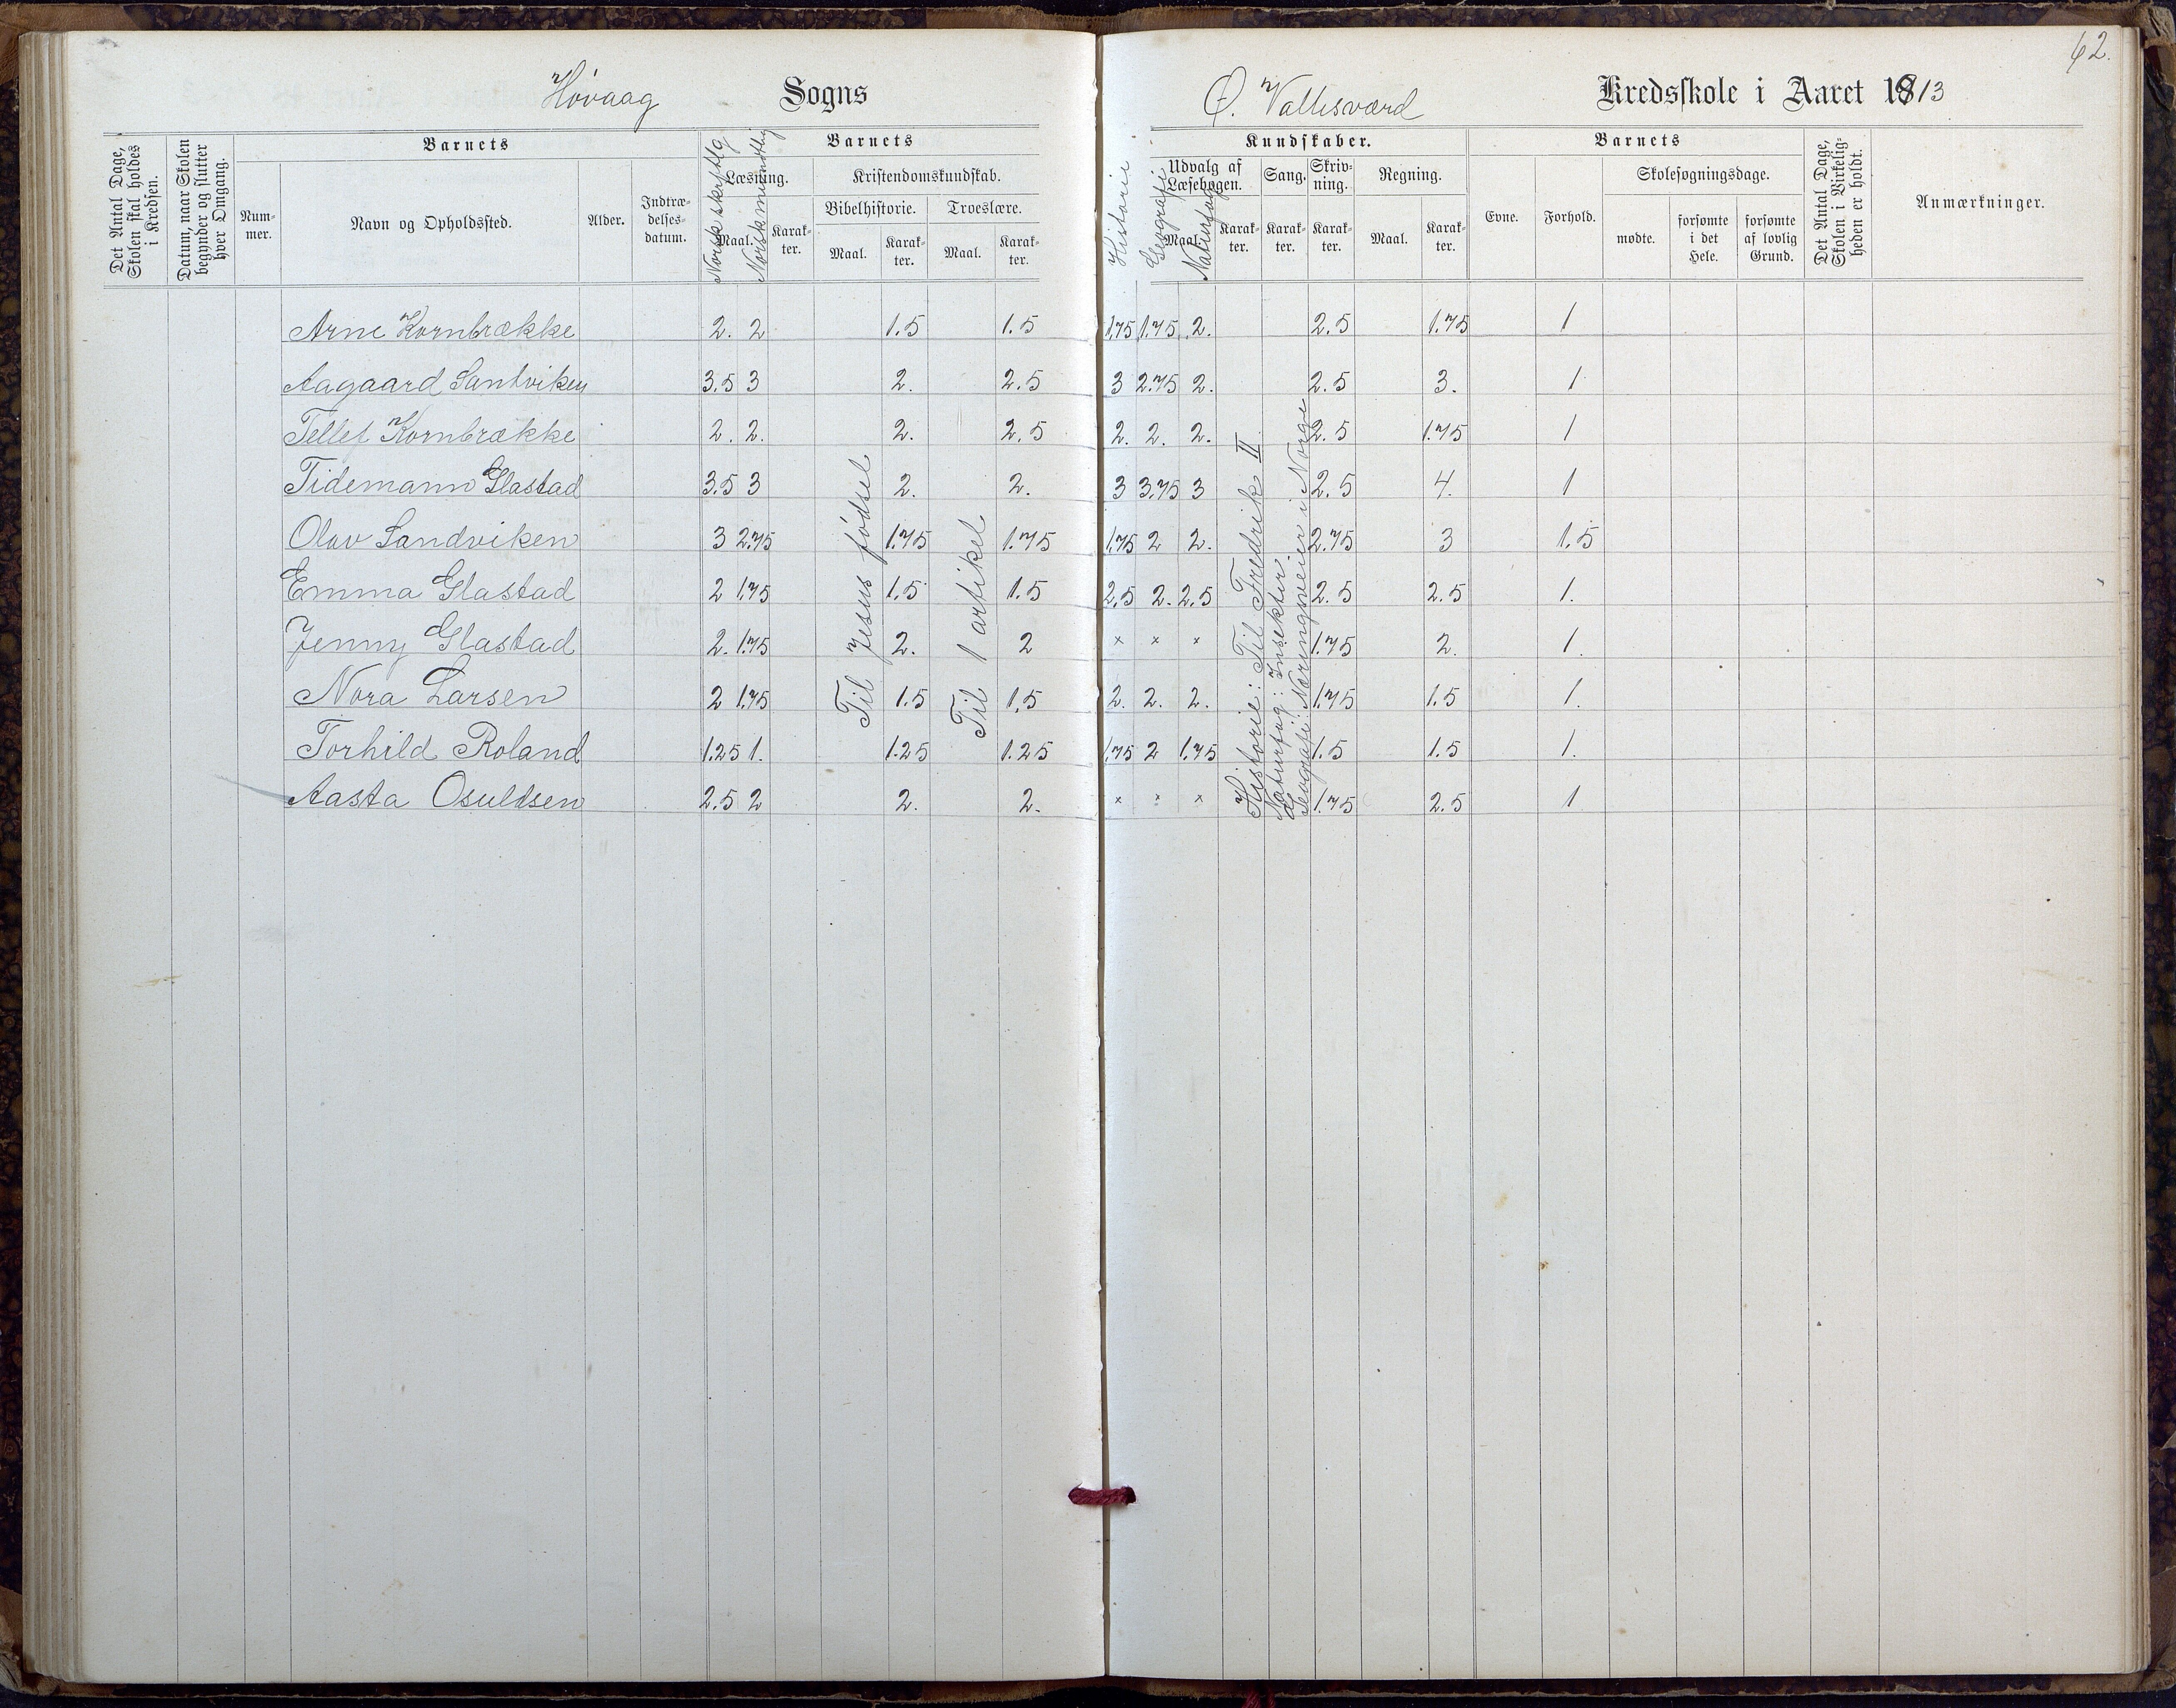 62.
Høvaag Sogns
Ø. Vallesværd Kredsskole i Aaret 1913
Det Antal Dage, Skolen skal holdes i Kredsen.
Datum, naar Skolen begynder og slutter hver Omgang.
Barnets
Nummer.
Navn og Opholdssted.
Alder.
Indtrædelsesdatum.
Barnets
Læsning.
Maal.
Norsk skriftlg
Norsk mundtlig
Karakter.
Kristendomskundskab.
Bibelhistorie.
Maal.
Karakter.
Troeslære.
Maal.
Karakter.
Historie
Geografi
Naturfag
Kundskaber.
Udvalg af Læsebogen.
Maal.
Karakter.
Sang.
Karakter.
Skrivning.
Karakter.
Regning.
Maal.
Karakter.
Barnets
Evne.
Forhold.
Skolesøgningsdage.
mødte.
forsømte i det Hele.
forsømte af lovlig Grund.
Det Antal Dage, Skolen i Virkeligheden er holdt.
Anmærkninger.
Arne Kornbrække 2. 2 1.5 1.5 1.75 1.75 2. 2.5 1.75 1
Aagaard Santviken 3.5 3 2. 2.5 3 2.75 2. 2.5 3. 1
Tellef Kornbrække 2. 2. 2. 2.5 2. 2. 2. 2.5 1.75 1
Tidemann Glastad 3.5 3 2. 2. 3 3.75 3 2.5 4. 1
Olav Sandviken 3 2.75 1.75 1.75 1.75 2 2. 2.75 3 1.5
Emma Glastad 2 1.75 1.5 1.5 2.5 2. 2.5 2.5 2.5 1.
Jenny Glastad 2. 1.75 2. 2 × × × 1.75 2. 1.
Nora Larsen 2 1.75 1.5 1.5 2. 2. 2. 1.75 1.5 1.
Torhild Roland 1.25 1. 1.25 1.25 1.75 2 1.75 1.5 1.5 1.
Aasta Osuldsen 2.5 2 2. 2. × × × 1.75 2.5 1
Til Jesus fødsel
Til 1 artikel
Historie: Til Fredrik II
Naturfag: Insekter
Geografi: Næringsveier i Norge